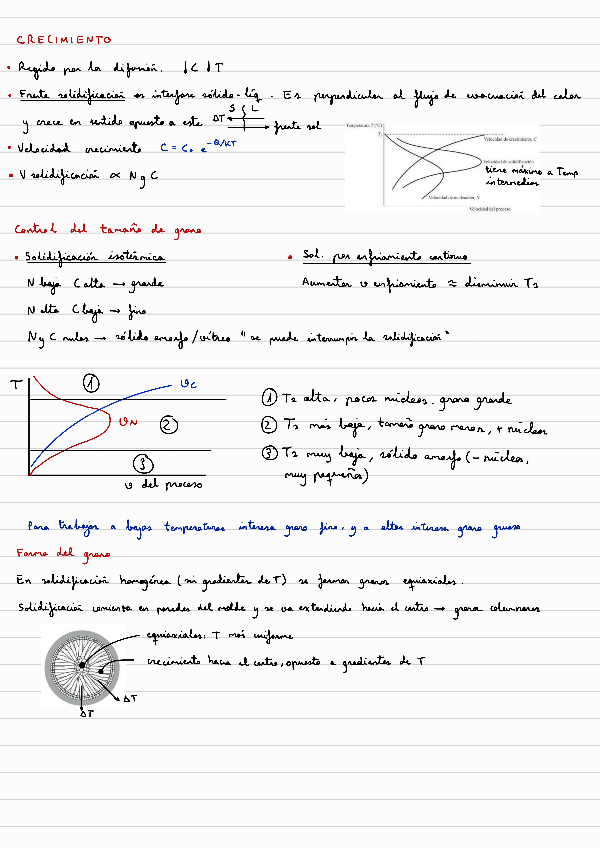 CRECIMIENTO
• Regido por la difusión. ↓C ↓T
• Frente solidificación es interfase sólido-líq. Es perpendicular al flujo de evacuación del calor
y crece en sentido opuesto a este ΔT S L frente sol
• Velocidad crecimiento C = C₀ e^-Q/KT
• V solidificación ∝ N y C
Temperatura T (°C)
Velocidad de crecimiento, C
Velocidad de solidificación
tiene máximo a Temp
intermedias
Velocidad de nucleación, N
Velocidad del proceso
Control del tamaño de grano
• Solidificación isotérmica
N baja C alta → grande
N alta C baja → fino
N y C nulas → sólido amorfo/vítreo "se puede interrumpir la solidificación"
• Sol. por enfriamiento continuo
Aumentar v enfriamiento ≈ disminuir Ts
T
① ② ③
vc
vN
v del proceso
① Ts alta, pocos núcleos. grano grande
② Ts más baja, tamaño grano menor, + núcleos
③ Ts muy baja, sólido amorfo (- núcleos,
muy pequeños)
Para trabajar a bajas temperaturas interesa grano fino, y a altas interesa grano grueso
Forma del grano
En solidificación homogénea (sin gradientes de T) se forman granos equiaxiales.
Solidificación comienza en paredes del molde y se va extendiendo hacia el centro → granos columnares
equiaxiales: T más uniforme
crecimiento hacia el centro, opuesto a gradientes de T
ΔT
ΔT